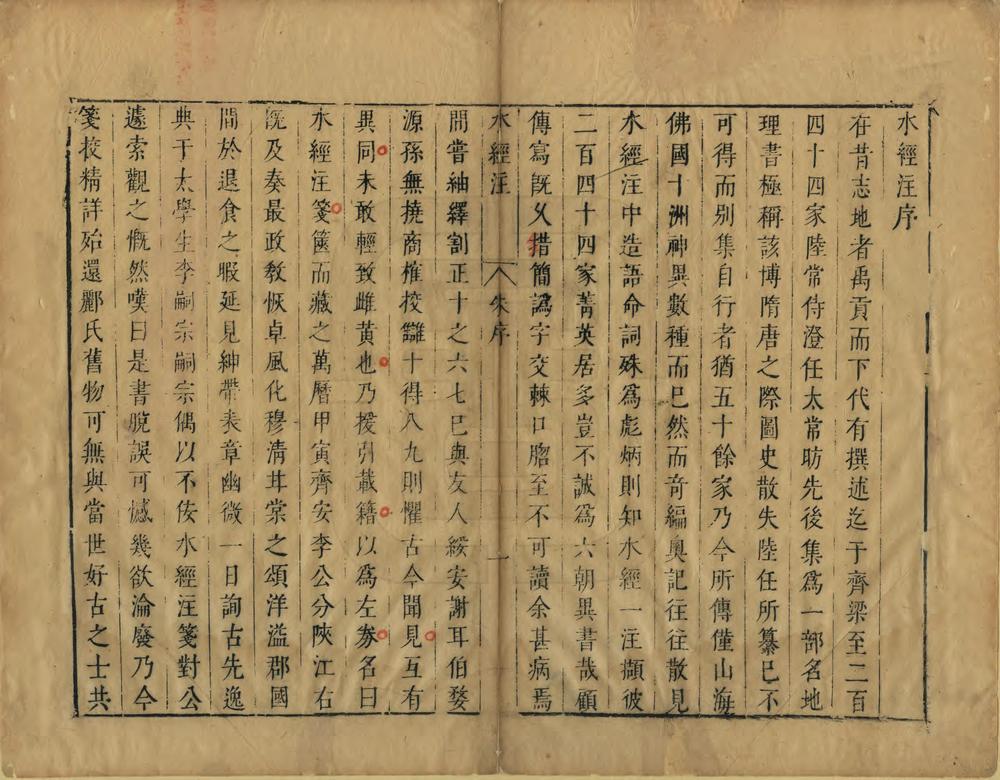 水經注序
在昔志地者禹貢而下代有撰述迄于齊梁至二百
四十四家陸常侍澄任太常昉先後集爲一部名地
理書極稱該博隋唐之際圖史散失陸任所纂已不
可得而别集自行者猶五十餘家乃今所傳僅山海
佛國十洲神異數種而已然而奇編奧記往往散見
水經注中造語命詞殊爲彪炳則知水經一注擷彼
二百四十四家菁英居多豈不誠爲六朝異書哉顧
傳寫旣乆措簡譌字交棘口膪至不可讀余甚病焉
水經注 朱序 一
間嘗紬繹割正十之六七已與友人綏安謝耳伯婺
源孫無撓商榷校讎十得八九則懼古今聞見互有
異同未敢輕致雌黃也乃援引載籍以爲左券名曰
水經注箋篋而藏之萬曆甲寅齊安李公分陝江右
旣及奏最政教恢卓風化穆清甘棠之頌洋溢郡國
間於退食之暇延見紳帶表章幽微一日詢古先逸
典于太學生李嗣宗嗣宗偶以不佞水經注箋對公
遽索觀之慨然嘆曰是書脫誤可憾幾欲淪廢乃今
箋校精詳始還酈氏舊物可無與當世好古之士共